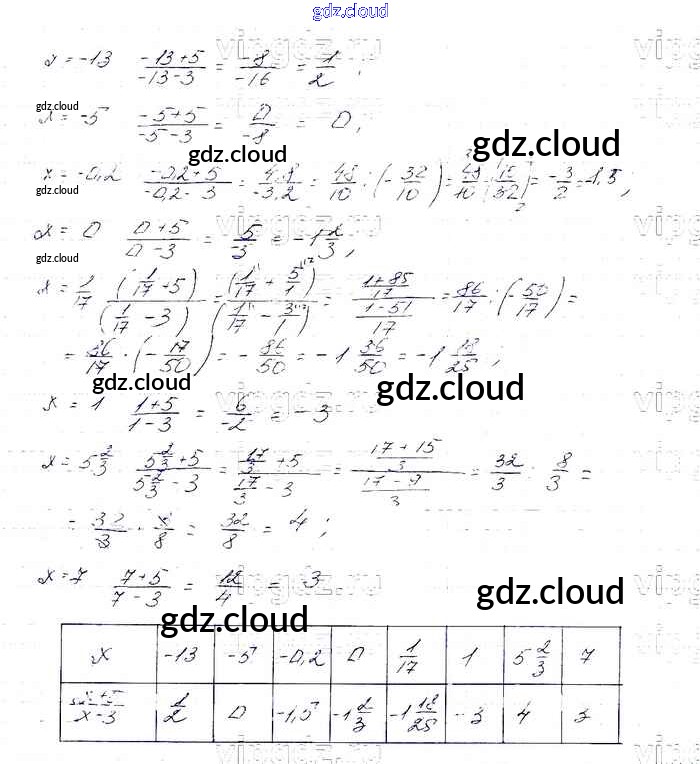 gdz.cloud
x = -13 (-13+5)/(-13-3) = -8/-16 = 1/2 ;
gdz.cloud
x = -5 (-5+5)/(-5-3) = 0/-8 = 0,
gdz.cloud
x = -0,2 (-0,2+5)/(-0,2-3) = 4,8/-3,2 = 48/10 : (-32/10) = 48/10 · 10/32 = -3/2 = -1,5 ;
gdz.cloud
x = 0 (0+5)/(0-3) = 5/-3 = -1 2/3 ,
gdz.cloud
x = 1/17 (1/17 + 5)/(1/17 - 3) = (1/17 + 5/1)/(1/17 - 3/1) = ((1+85)/17)/((1-51)/17) = 86/17 : (-50/17) =
= 86/17 · (-17/50) = -86/50 = -1 36/50 = -1 18/25 ;
gdz.cloud gdz.cloud
x = 1 (1+5)/(1-3) = 6/-2 = -3
x = 5 2/3 (5 2/3 + 5)/(5 2/3 - 3) = (17/3 + 5)/(17/3 - 3) = ((17+15)/3)/((17-9)/3) = 32/3 : 8/3 =
= 32/3 · 3/8 = 32/8 = 4 ;
x = 7 (7+5)/(7-3) = 12/4 = 3
gdz.cloud
gdz.cloud
x -13 -5 -0,2 0 1/17 1 5 2/3 7
(x+5)/(x-3) 1/2 0 -1,5 -1 2/3 -1 18/25 -3 4 3